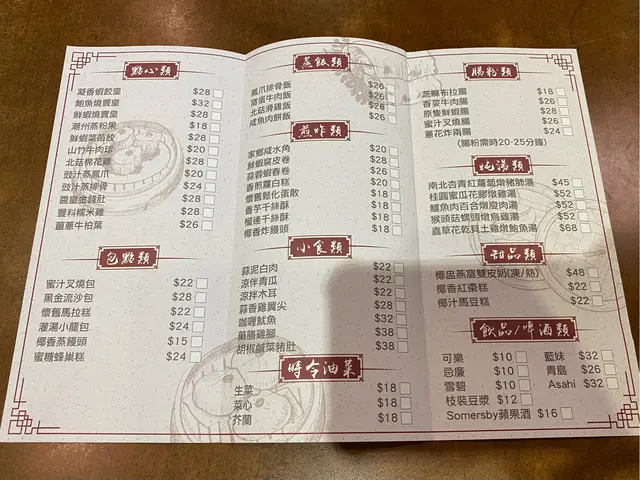 點心類
凝香蝦餃皇 $28
鮑魚燒賣皇 $32
鮮蝦燒賣皇 $28
潮州蒸粉果 $18
鮮蝦菜苗餃 $28
山竹牛肉球 $20
北菇棉花雞 $28
豉汁蒸鳳爪 $20
豉汁蒸排骨 $24
醬皇金錢肚 $28
豐料糯米雞 $28
薑蔥牛柏葉 $26
包點類
蜜汁叉燒包 $22
黑金流沙包 $28
懷舊馬拉糕 $22
灌湯小龍包 $24
椰香蒸饅頭 $15
蜜糖蜂巢糕 $24
蒸飯類
鳳爪排骨飯 $26
窩蛋牛肉飯 $26
北菇滑雞飯 $26
咸魚肉餅飯 $26
煎炸類
家鄉咸水角 $20
鮮蝦腐皮卷 $28
蒜蓉蝦春卷 $26
香煎蘿白糕 $20
懷舊鬆化蛋散 $18
香芋千絲酥 $18
榴連千絲酥 $18
椰香炸饅頭 $18
小食類
蒜泥白肉 $22
涼伴青瓜 $22
涼拌木耳 $22
蒜香雞翼尖 $28
咖喱魷魚 $32
藥膳雞腳 $38
胡椒鹹菜豬肚 $38
時令油菜
生菜 $18
菜心 $18
芥蘭 $18
腸粉類
芝麻布拉腸 $18
香菜牛肉腸 $26
原隻鮮蝦腸 $28
蜜汁叉燒腸 $26
蔥花炸兩腸 $24
(腸粉需時20-25分鐘)
炖湯類
南北杏青紅蘿蔔燉豬肺湯 $45
桂圓蜜瓜花膠燉雞湯 $52
鱷魚肉百合燉瘦肉湯 $52
猴頭菇螺頭燉烏雞湯 $52
蟲草花乾貝土雞燉鮑魚湯 $68
甜品類
椰盅燕窩雙皮奶(凍/熱) $48
椰香紅棗糕 $22
椰汁馬豆糕 $22
飲品/啤酒類
可樂 $10 藍妹 $32
忌廉 $10 青島 $26
雪碧 $10 Asahi $32
枝裝豆漿 $12
Somersby蘋果酒 $16